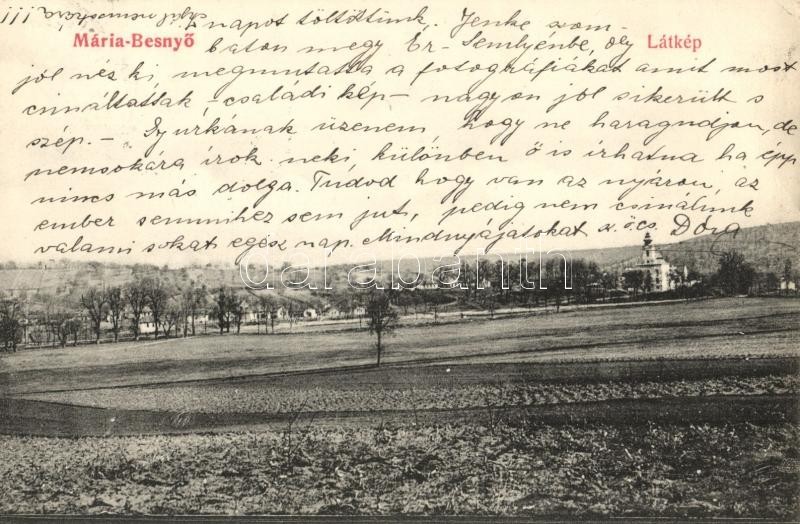 napot töltöttünk. Jenke szom-
Mária-Besnyő
Látkép
baton megy Ér-Semlyénbe, oly
jól néz ki, megmutatta a fotográfiákat amit most
csináltattak, - családi kép - nagyon jól sikerült s
szép. - Gyurkának üzenem, hogy ne haragudjon, de
nemsokára írok neki, különben ő is írhatna ha épp
nincs más dolga. Tudod hogy van az nyáron, az
ember semmihez sem jut, pedig nem csinálunk
valami sokat egész nap. Mindnyájatokat cs. ö. cs. Dóra
darabanth